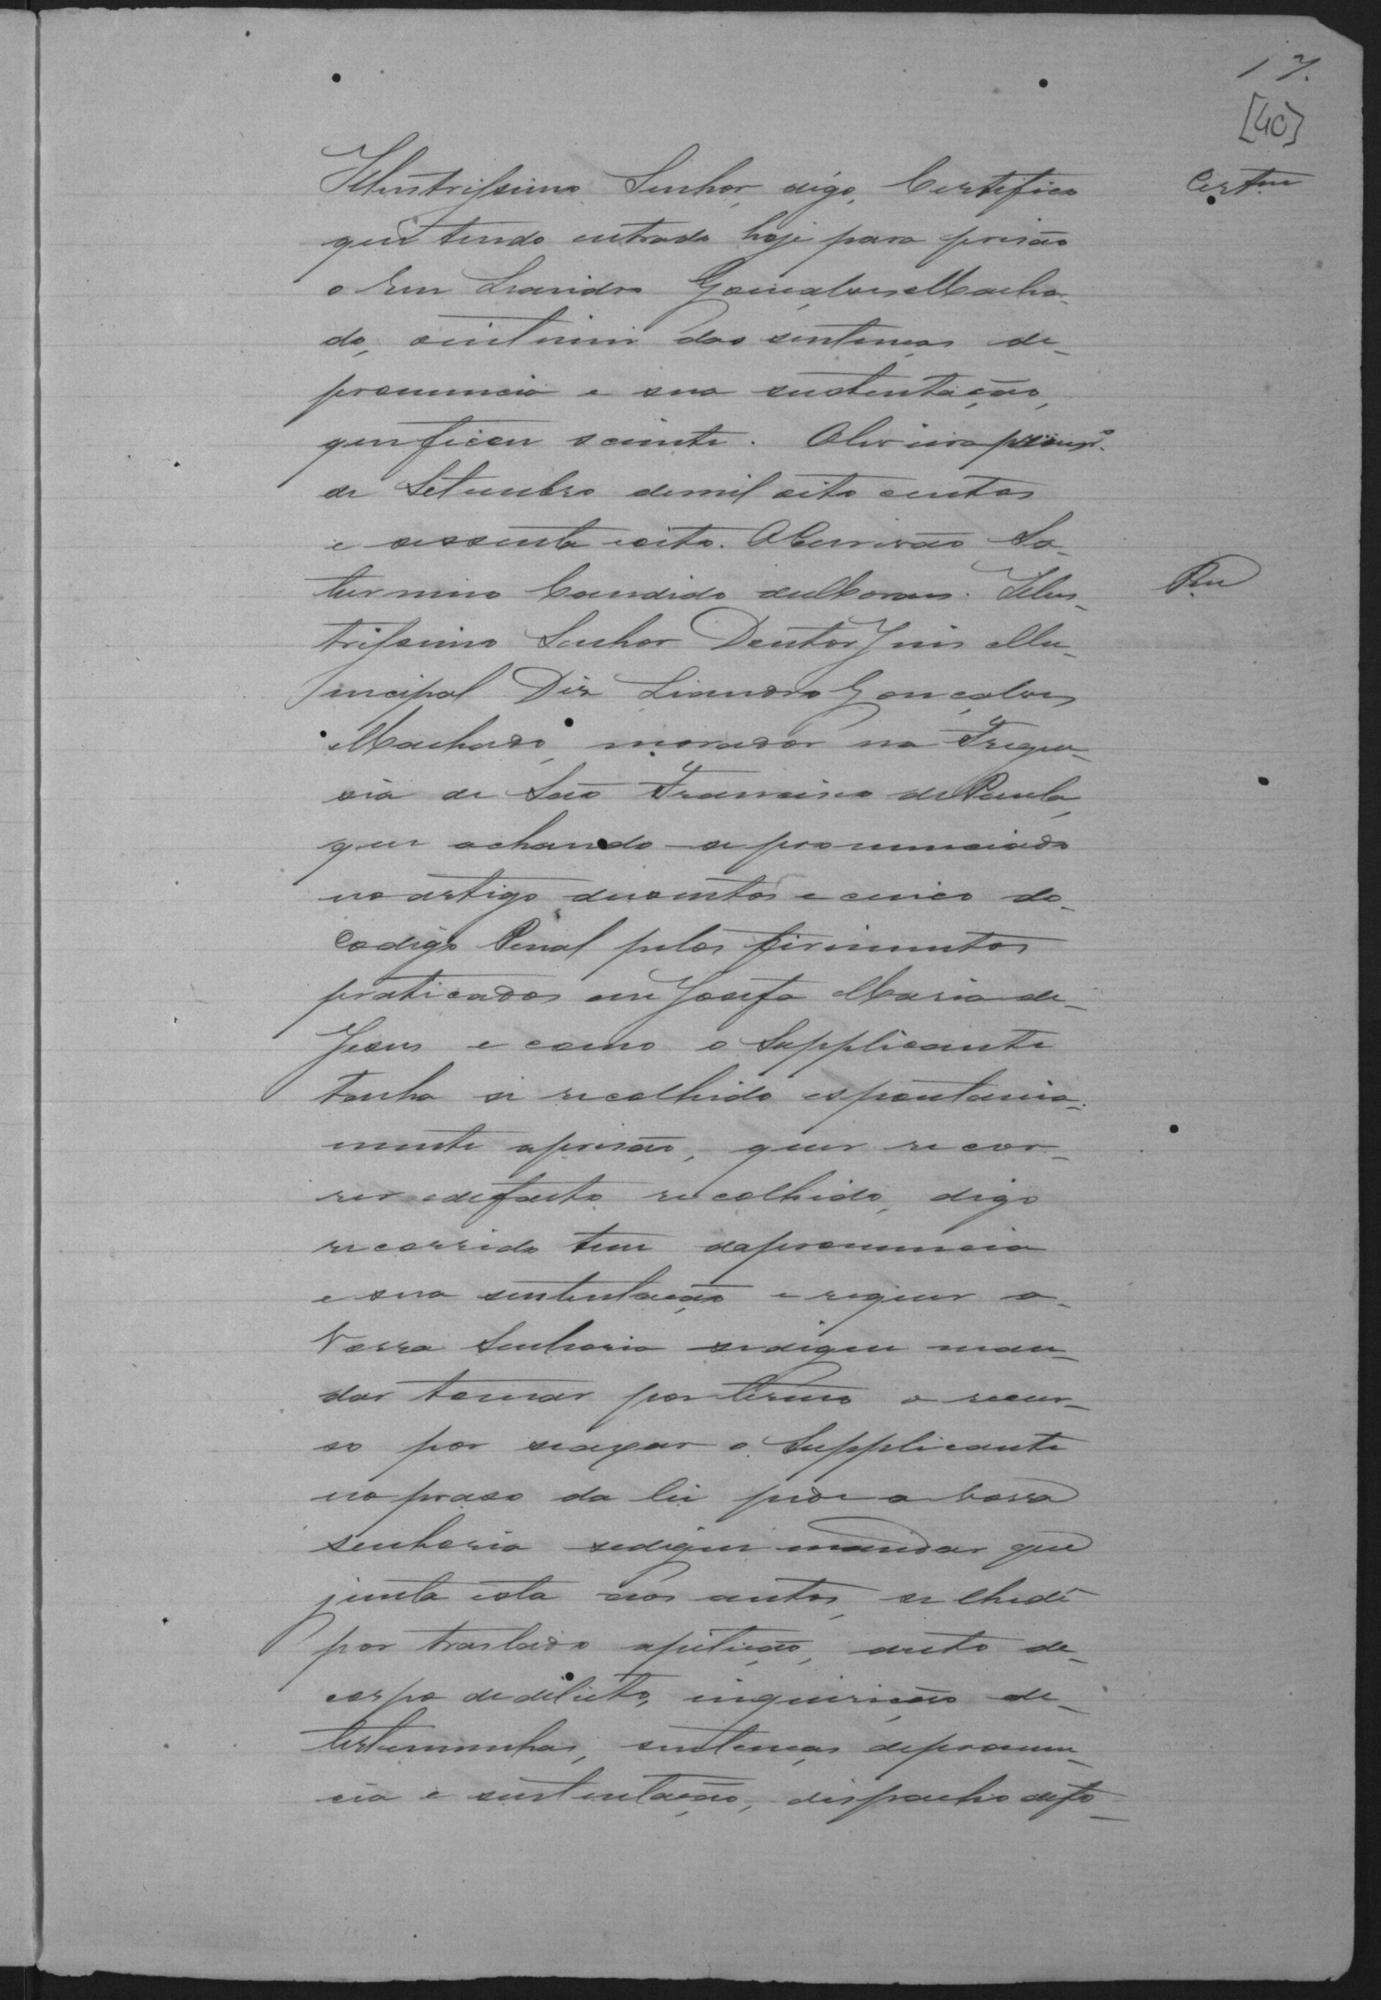 17.
[40]
Illustrissimo Senhor, digo, Certifico
Certm
que tendo entrado hoje para prisão
o Reu Leandro Gonçalves Macha-
do, o intimei das sentenças de-
pronuncia e sua sustentação,
que ficou sciente. Oliveira primro
de Setembro de mil oito centos
e sessenta e oito. O Escrivão Sa-
turnino Candido de Moraes. Illus-
Pm
trissimo Senhor Doutor Juis Mu-
nicipal Diz Liandro Gonçalves
Machado, morador na Fregue-
sia de São Francisco de Paula,
que achando-se pronunciado
no artigo dusentos e cinco do
Codigo Penal pelos ferimentos
praticados em Josefa Maria de-
Jesus e como o Supplicante
tenha si recolhido espontania-
mente a prisão, quer recor-
rer e de facto recolhido, digo
recorrido tem da pronuncia
e sua sustentação e requer a-
Vossa Senhoria se digne man-
dar tomar por termo o recur-
so por o Supplicante
no praso da lei pede a Vossa
Senhoria se digne mandar que
junta esta aos autos, se lhe dê
por traslado a petição, auto de-
corpo de delicto, inquirição de-
testemunhas, sentenças de pronun-
cia e sustentação, despacho de fo-